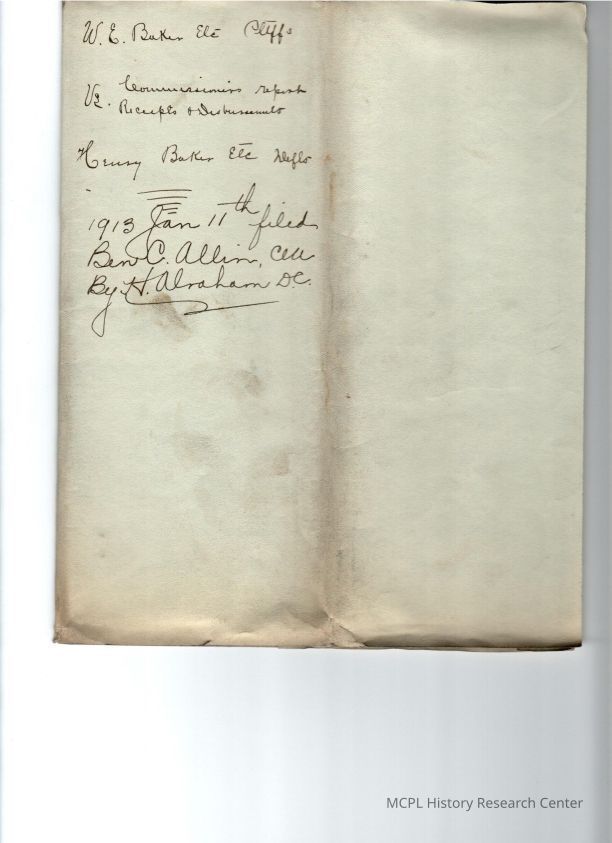 W. E. Baker Etc Pltffs
Vs. Commissioners report
Receipts & Disbursements
Henry Baker Etc Defts
1913 Jan 11th filed
Ben C. Allin, Clk
By H. Abraham D.C.
MCPL History Research Center